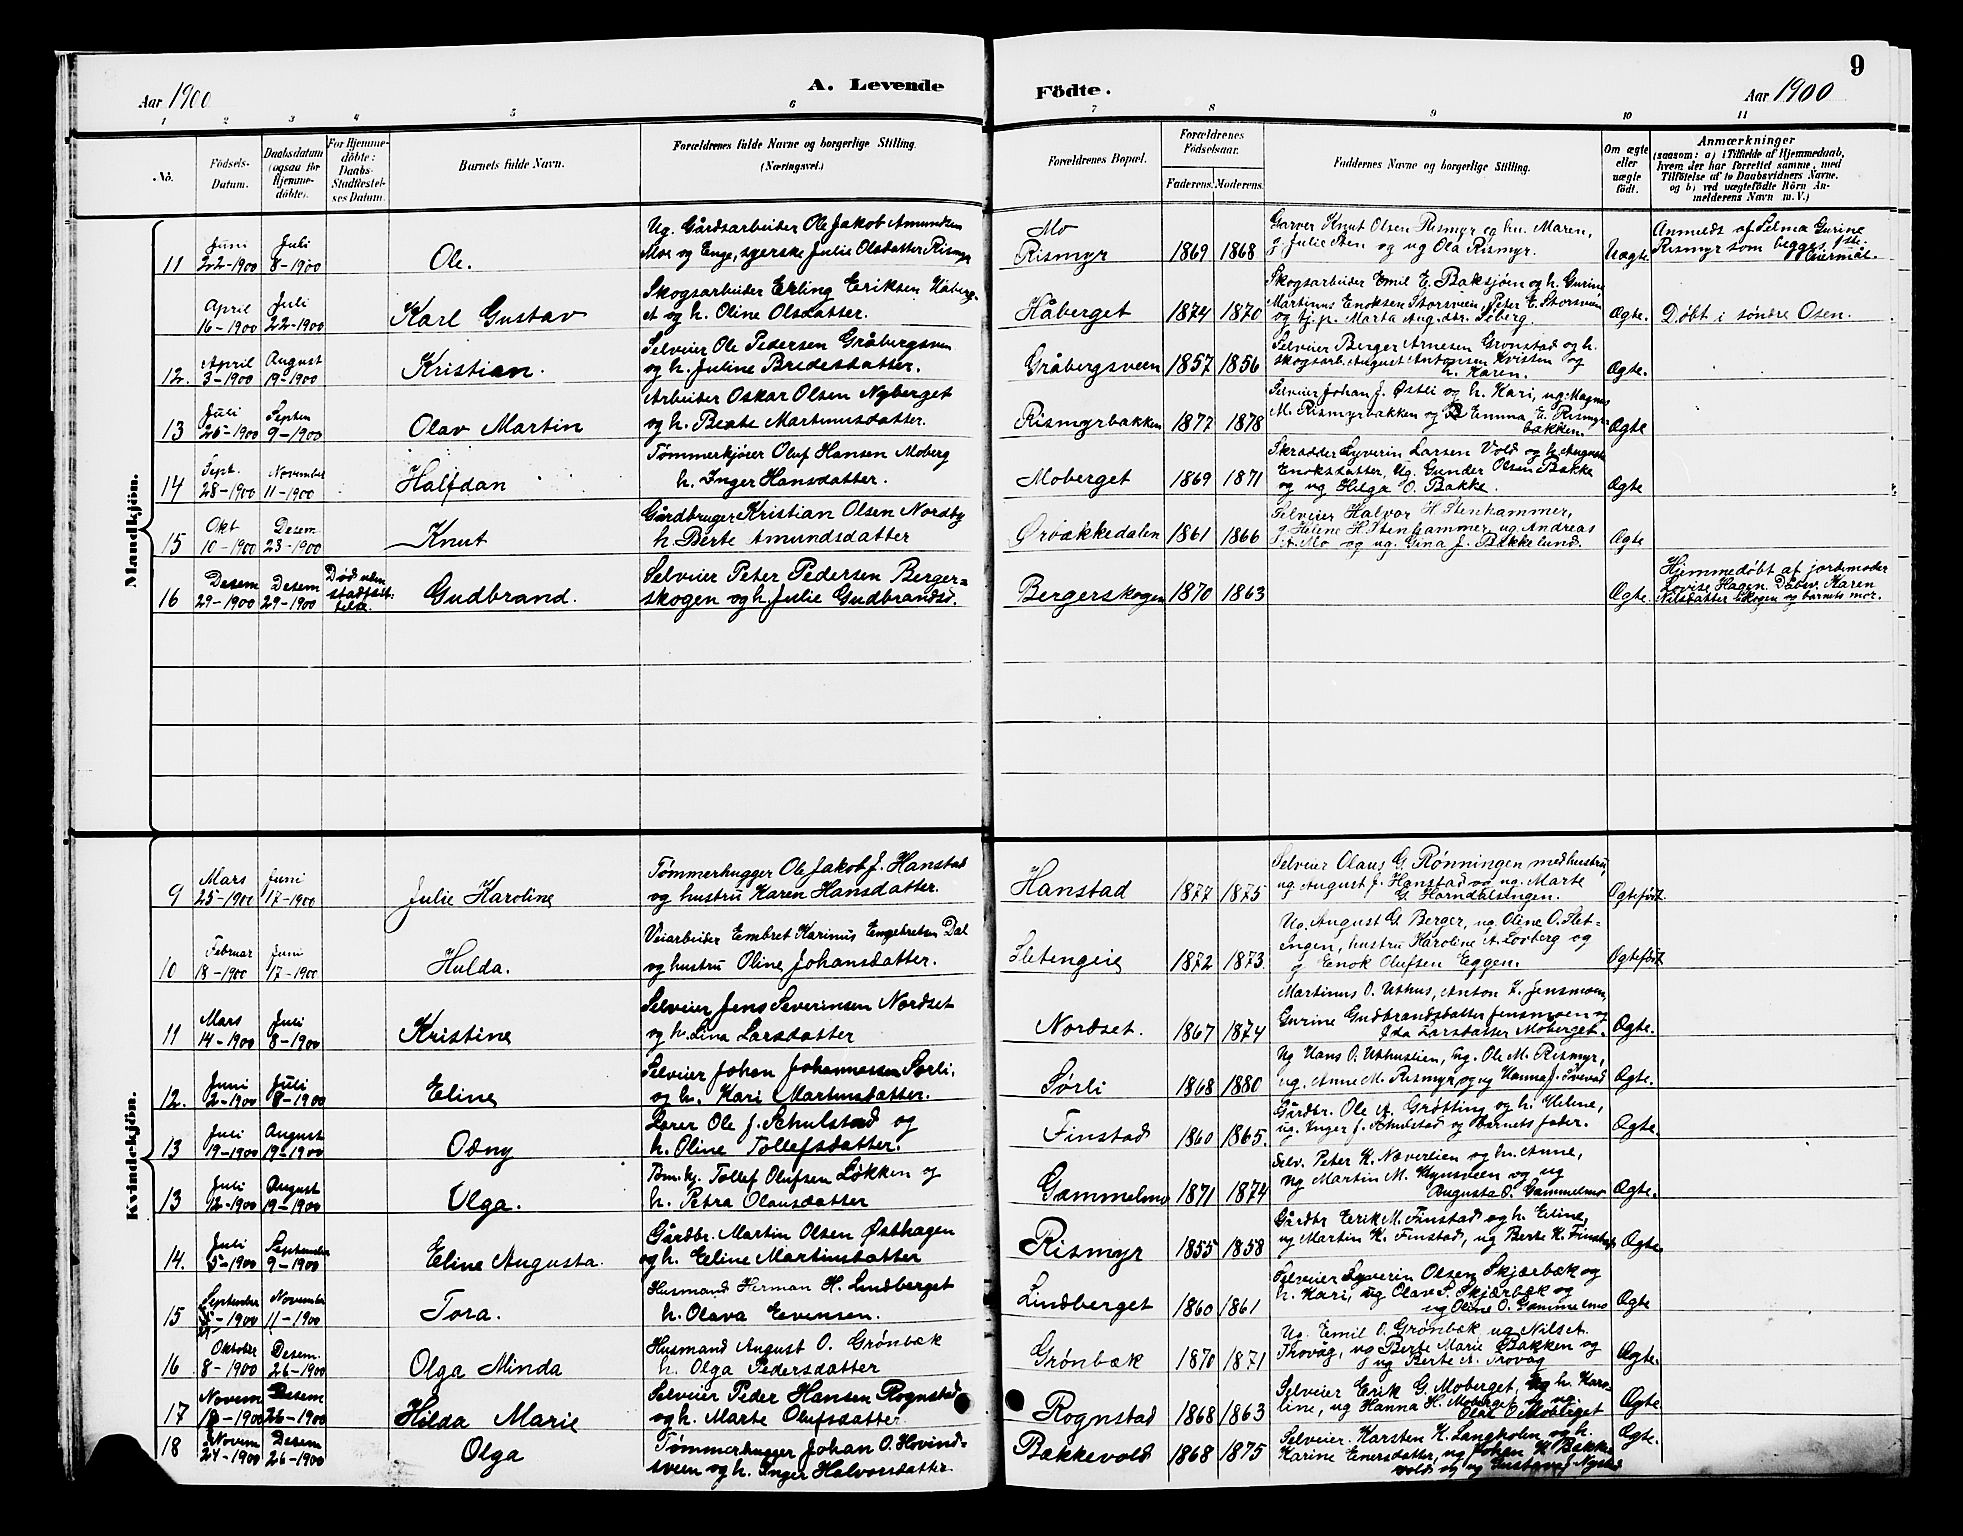 9
Aar 1900
A. Levende
Födte.
Aar 1900
1 2 3 4 5 6 7 8 9 10 11
No.
Födsels-Datum.
Daabsdatum (ogsaa for Hjemme-döbte).
For Hjemme-döbte: Daabs-Stadfæstel-ses Datum.
Barnets fulde Navn.
Forældrenes fulde Navne og borgerlige Stilling. (Næringsvei.)
Forældrenes Bopæl.
Forældrenes Födselsaar.
Faderens. Moderens.
Faddernes Navne og borgerlige Stilling.
Om ægte eller uægte födt.
Anmærkninger
(saasom: a) i Tilfælde af Hjemmedaab,
hvem der har forrettet samme, med
Tilföielse af to Daabsvidners Navne,
og b) ved uægtefödte Börn An-
melderens Navn m. V.)
Mandkjön.
11 Juni 22-1900 Juli 8-1900 Ole.
Ug. Gårdsarbeider Ole Jakob Amundsen
Moe og Enge, syerske Julie Olsdatter Rismyr
Mo
Rismyr 1869 1868
Garver Knut Olsen Rismyr og hu. Maren,
og ug Ola Rismyr.
Uægte
Anmeldt af Selma Gurine
Rismyr som begges 1ste leiermål.
April 16-1900 Juli 22-1900 Karl Gustav
Skogsarbeider Erling Eriksen Håberg-
et og h. Oline Olsdatter.
Håberget 1874 1870
Skogsarbeider Emil E. Baksjøen og h. Gurine
Martinus Enoksen Storsveen, Peter E. Storsveen
og tj.p. Marta Aug.dtr. Søberg.
Ægte. Døbt i søndre Osen.
12. April 3-1900 August 19-1900 Kristian.
Selveier Ole Pedersen Gråbergsven
og h. Juline Bredesdatter.
Gråbergsveen 1857 1856
Selveier Berger Arnesen Grønstad og h.
skogsarb. August Antonsen Kvisten og
h. Karen.
Ægte.
13 Juli 26-1900 Septem 9-1900 Olav Martin
Arbeider Oskar Olsen Nyberget
og h. Beate Martinusdatter.
Rismyrbakken 1877 1878
Selveier Johan J. Østli og h. Kari, ug. Magnus
M. Rismyrbakken og Emma E. Rismyr-
bakken.
Ægte
14 Sept. 28-1900 November 11-1900 Halfdan
Tømmerkjører Oluf Hansen Moberg
h. Inger Hansdatter.
Moberget 1869 1871
Skrædder Syverin Larsen Vold og h. Auguste
Enoksdatter, Ug. Gunder Olsen Bakke
og ug Hilga O. Bakke.
Ægte
15 Okt 10-1900 Desem 23-1900 Knut
Gårdbruger Kristian Olsen Nordby
h. Berte Amundsdatter
Ørbækkedalen 1861 1866
Selveier Halvor H Stenhammer,
g Helene H. Stenhammer, ug. Andreas
A. Mo og ug. Gina J. Bakkelund.
Ægte
16 Desem 29-1900 Desem 29-1900 Død uten stadfæstelse Gudbrand.
Selveier Peter Pedersen Berger-
skogen og h. Julie Gudbrandsd.
Bergerskogen 1870 1863
Ægte.
Hjemmedøbt af jordemoder
Lovise Hagen. Dåbsv. Karen
Nilsdatter Skogen og barnets mor.
Kvindekjön.
9 Mars 25-1900 Juni 17-1900 Julie Karoline
Tømmerhugger Ole Jakob J. Hanstad
og hustru Karen Hansdatter.
Hanstad 1877 1875
Selveier Olaus G. Rønningen med hustru,
ug. August J. Hanstad og ug. Marte
G. Horndalsengen.
Ægtefødt.
10 Februar 18-1900 Juni 17-1900 Hulda.
Veiarbeider Embret Karinus Engebretsen Dal
og hustru Oline Johansdatter.
Sletengeie 1872 1873.
Ug. August G. Berger, ug Oline O. Slet-
Engen, hustru Karoline A. Lovberg og
g Enok Olufsen Eggen.
Ægtefødt
11 Mars 14-1900 Juli 8-1900 Kristine
Selveier Jens Severinsen Nordset
og h. Lina Larsdatter
Nordset. 1867 1874
Martinus O. Uthus, Anton K. Jensmoen,
Gurine Gudbrandsdatter Jensmoen og
Ida Larsdatter Moberget.
Ægte.
12. Juni 2-1900 Juli 8-1900 Eline
Selveier Johan Johannessen Sørli.
og h. Kari Martinsdatter.
Sørli 1868 1880
Ug Hans O. Uthuslien, Ug. Ole M. Rismyr,
ug. Anne M. Rismyr og ug Hanna J.
Ægte.
13 Juli 19-1900 August 19-1900 Odny
Lærer Ole J. Schulstad og
h. Oline Tollefsdatter.
Finstad 1860 1865.
Gårdbr. Ole A. Grøtting og h. Helene,
ug. Inger J. Schulstad og barnets fader.
Ægte.
13 Juli 12-1900 August 19-1900 Olga.
Tøm.kj. Tollef Olufsen Løkken og
h. Petra Olausdatter
Gammelmo 1871 1874
Selv. Peter K. Næverlien og h. Anne,
Ug Martin M. Mynsveen og ug
Augusta O. Gammelmo
Ægte.
14. Juli 5-1900 September 9-1900 Eline Augusta.
Gårdbr. Martin Olsen Østhagen
og h. Eeline Martinsdatter
Rismyr 1855 1858
Gårdbr Erik M. Finstad og h. Eline,
ug Martin K. Finstad, ug Berte K. Finstad
Ægte
15 September -1900 November 11-1900 Tora.
Husmand Herman H. Lindberget
h. Olava Evensen.
Lindberget 1860 1861
Selveier Syverin Olsen Skjærbæk og
h. Kari, ug Olav S. Skjærbæk og
ug Oline O. Gammelmo
Ægte
16 Oktober 8-1900 Desem. 26-1900 Olga Minda
Husmand August O. Grønbæk
h. Olga Pedersdatter
Grønbæk 1870 1871
Ug. Emil O. Grønbæk ug Nils et.
Trovåg, ug Berte Marie Bakken og
ug Berte A. Trovåg
Ægte.
17 Novem 18-1900 Desem 26-1900 Hilda Marie
Selveier Peder Hansen Rognstad
og h. Marte Olufsdatter
Rognstad 1868 1863
Selveier Erik G. Moberget, og h. Karo-
line, ug Hanna H. Moberget og ug
Olav O Moberget
Ægte
18 Novem 24-1900 Desem 26-1900 Olga
Tømmerhugger Johan O. Hovind-
sveen og h. Inger Halvorsdatter.
Bakkevold 1868 1875
Selveier. Karsten K. Langholen og h.
Karine Enersdatter, ug Johan K Bakke
vold og ug Gustava J. Nystad
Ægte.